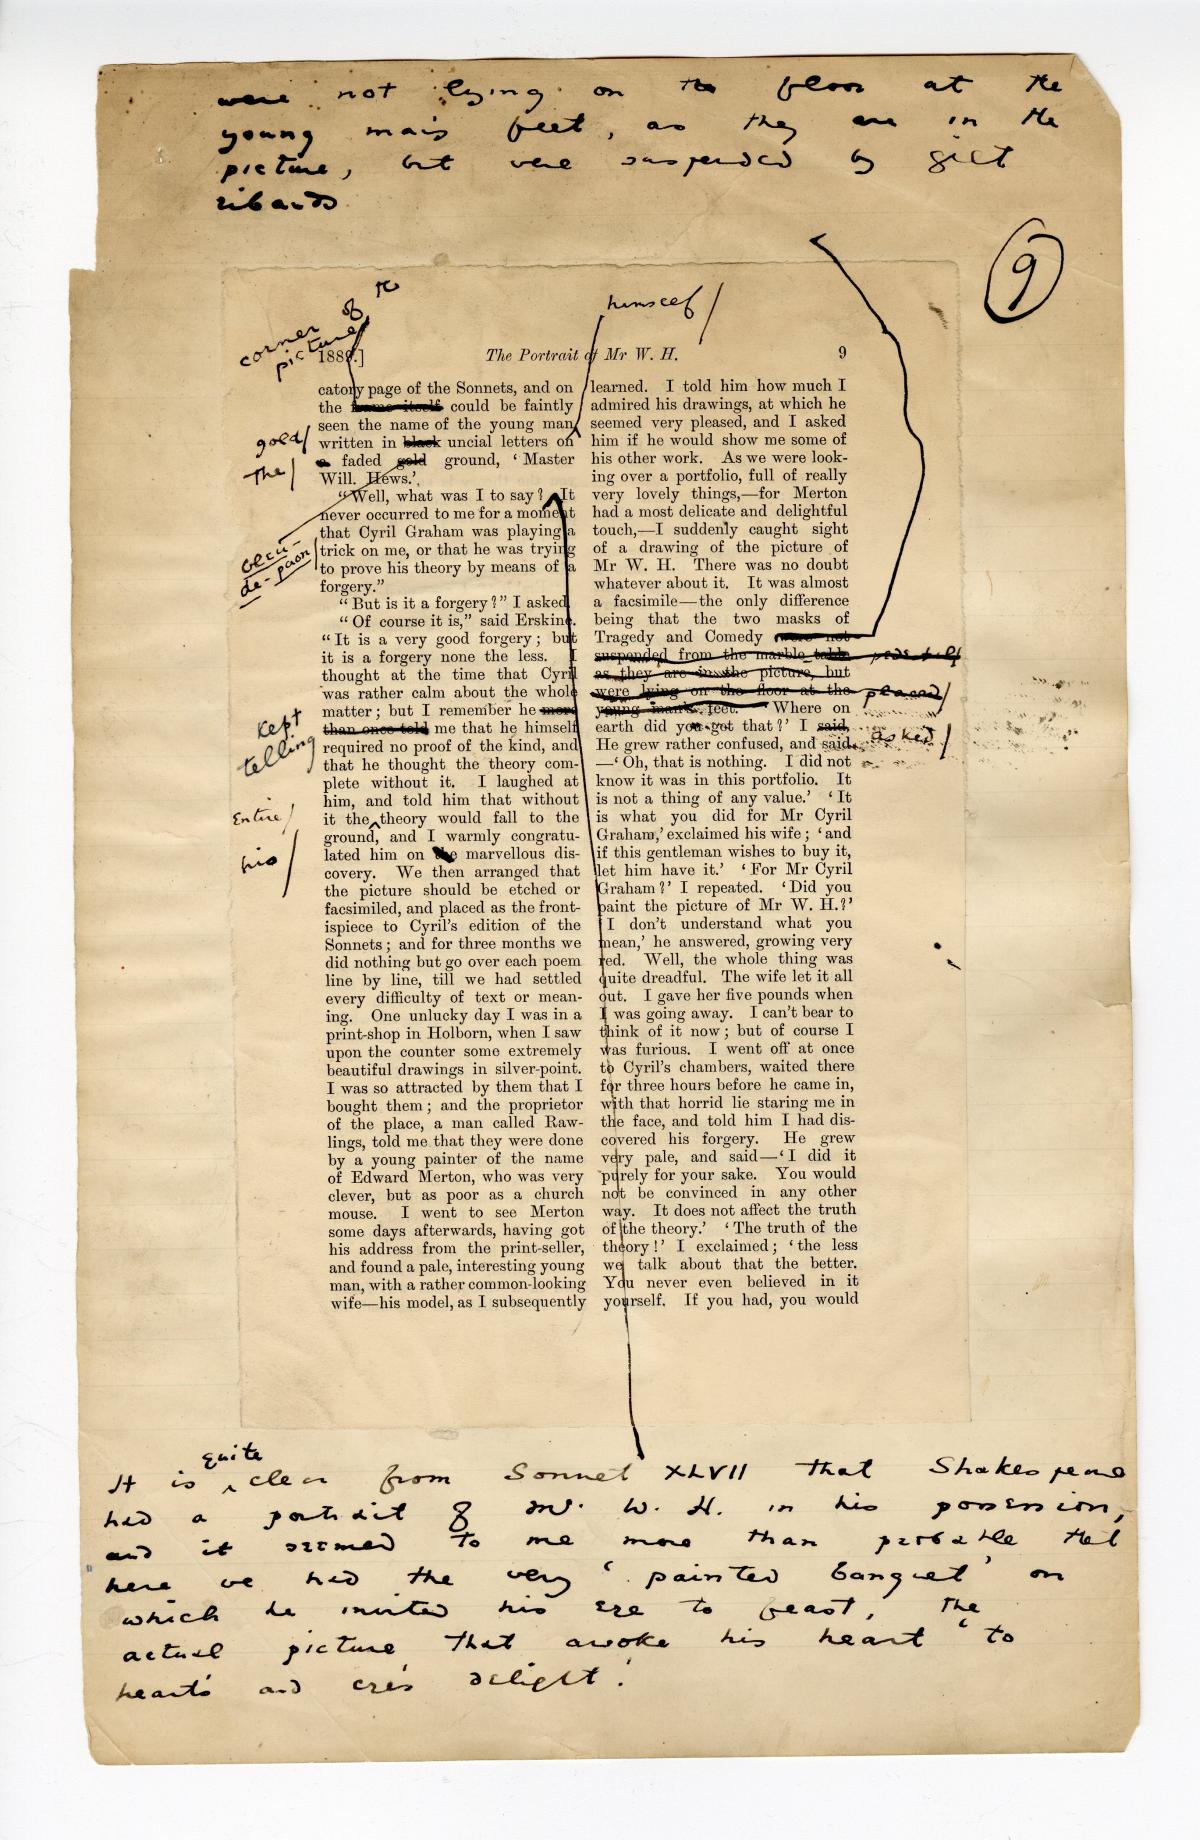 were not lying on the floor at the
young man's feet, as they are in the
picture, but were suspended by gilt
ribands
9
corner of the
picture
himself/
1889.]
The Portrait of Mr W. H.
9
catory page of the Sonnets, and on
the frame itself could be faintly
seen the name of the young man
written in black uncial letters on
a faded gold ground, ‘Master
Will. Hews.’
gold/
The/
bleu-
de-paon
“Well, what was I to say? It
never occurred to me for a moment
that Cyril Graham was playing a
trick on me, or that he was trying
to prove his theory by means of a
forgery.”
“But is it a forgery?” I asked.
“Of course it is,” said Erskine.
“It is a very good forgery; but
it is a forgery none the less. I
thought at the time that Cyril
was rather calm about the whole
matter; but I remember he more
than once told me that he himself
required no proof of the kind, and
that he thought the theory com-
plete without it. I laughed at
him, and told him that without
it the theory would fall to the
ground, and I warmly congratu-
lated him on the marvellous dis-
covery. We then arranged that
the picture should be etched or
facsimiled, and placed as the front-
ispiece to Cyril’s edition of the
Sonnets; and for three months we
did nothing but go over each poem
line by line, till we had settled
every difficulty of text or mean-
ing. One unlucky day I was in a
print-shop in Holborn, when I saw
upon the counter some extremely
beautiful drawings in silver-point.
I was so attracted by them that I
bought them; and the proprietor
of the place, a man called Raw-
lings, told me that they were done
by a young painter of the name
of Edward Merton, who was very
clever, but as poor as a church
mouse. I went to see Merton
some days afterwards, having got
his address from the print-seller,
and found a pale, interesting young
man, with a rather common-looking
wife—his model, as I subsequently
kept
telling
Entire/
his/
learned. I told him how much I
admired his drawings, at which he
seemed very pleased, and I asked
him if he would show me some of
his other work. As we were look-
ing over a portfolio, full of really
very lovely things,—for Merton
had a most delicate and delightful
touch,—I suddenly caught sight
of a drawing of the picture of
Mr W. H. There was no doubt
whatever about it. It was almost
a facsimile—the only difference
being that the two masks of
Tragedy and Comedy were not
suspended from the marble table
as they are in the picture, but
were lying on the floor at the
young man’s feet. ‘Where on
earth did you get that?’ I said.
He grew rather confused, and said
—‘Oh, that is nothing. I did not
know it was in this portfolio. It
is not a thing of any value.’ ‘It
is what you did for Mr Cyril
Graham,’ exclaimed his wife; ‘and
if this gentleman wishes to buy it,
let him have it.’ ‘For Mr Cyril
Graham?’ I repeated. ‘Did you
paint the picture of Mr W. H.?’
‘I don’t understand what you
mean,’ he answered, growing very
red. Well, the whole thing was
quite dreadful. The wife let it all
out. I gave her five pounds when
I was going away. I can’t bear to
think of it now; but of course I
was furious. I went off at once
to Cyril’s chambers, waited there
for three hours before he came in,
with that horrid lie staring me in
the face, and told him I had dis-
covered his forgery. He grew
very pale, and said—‘I did it
purely for your sake. You would
not be convinced in any other
way. It does not affect the truth
of the theory.’ ‘The truth of the
theory!’ I exclaimed; ‘the less
we talk about that the better.
You never even believed in it
yourself. If you had, you would
placed/
asked/
It is quite clear from Sonnet XLVII that Shakespeare
had a portrait of Mr. W. H. in his possession,
and it seemed to me more than probable that
here we had the very ‘painted banquet’ on
which he invited his eye to feast, the
actual picture that awoke his heart ‘to
heart's and eye's delight.’